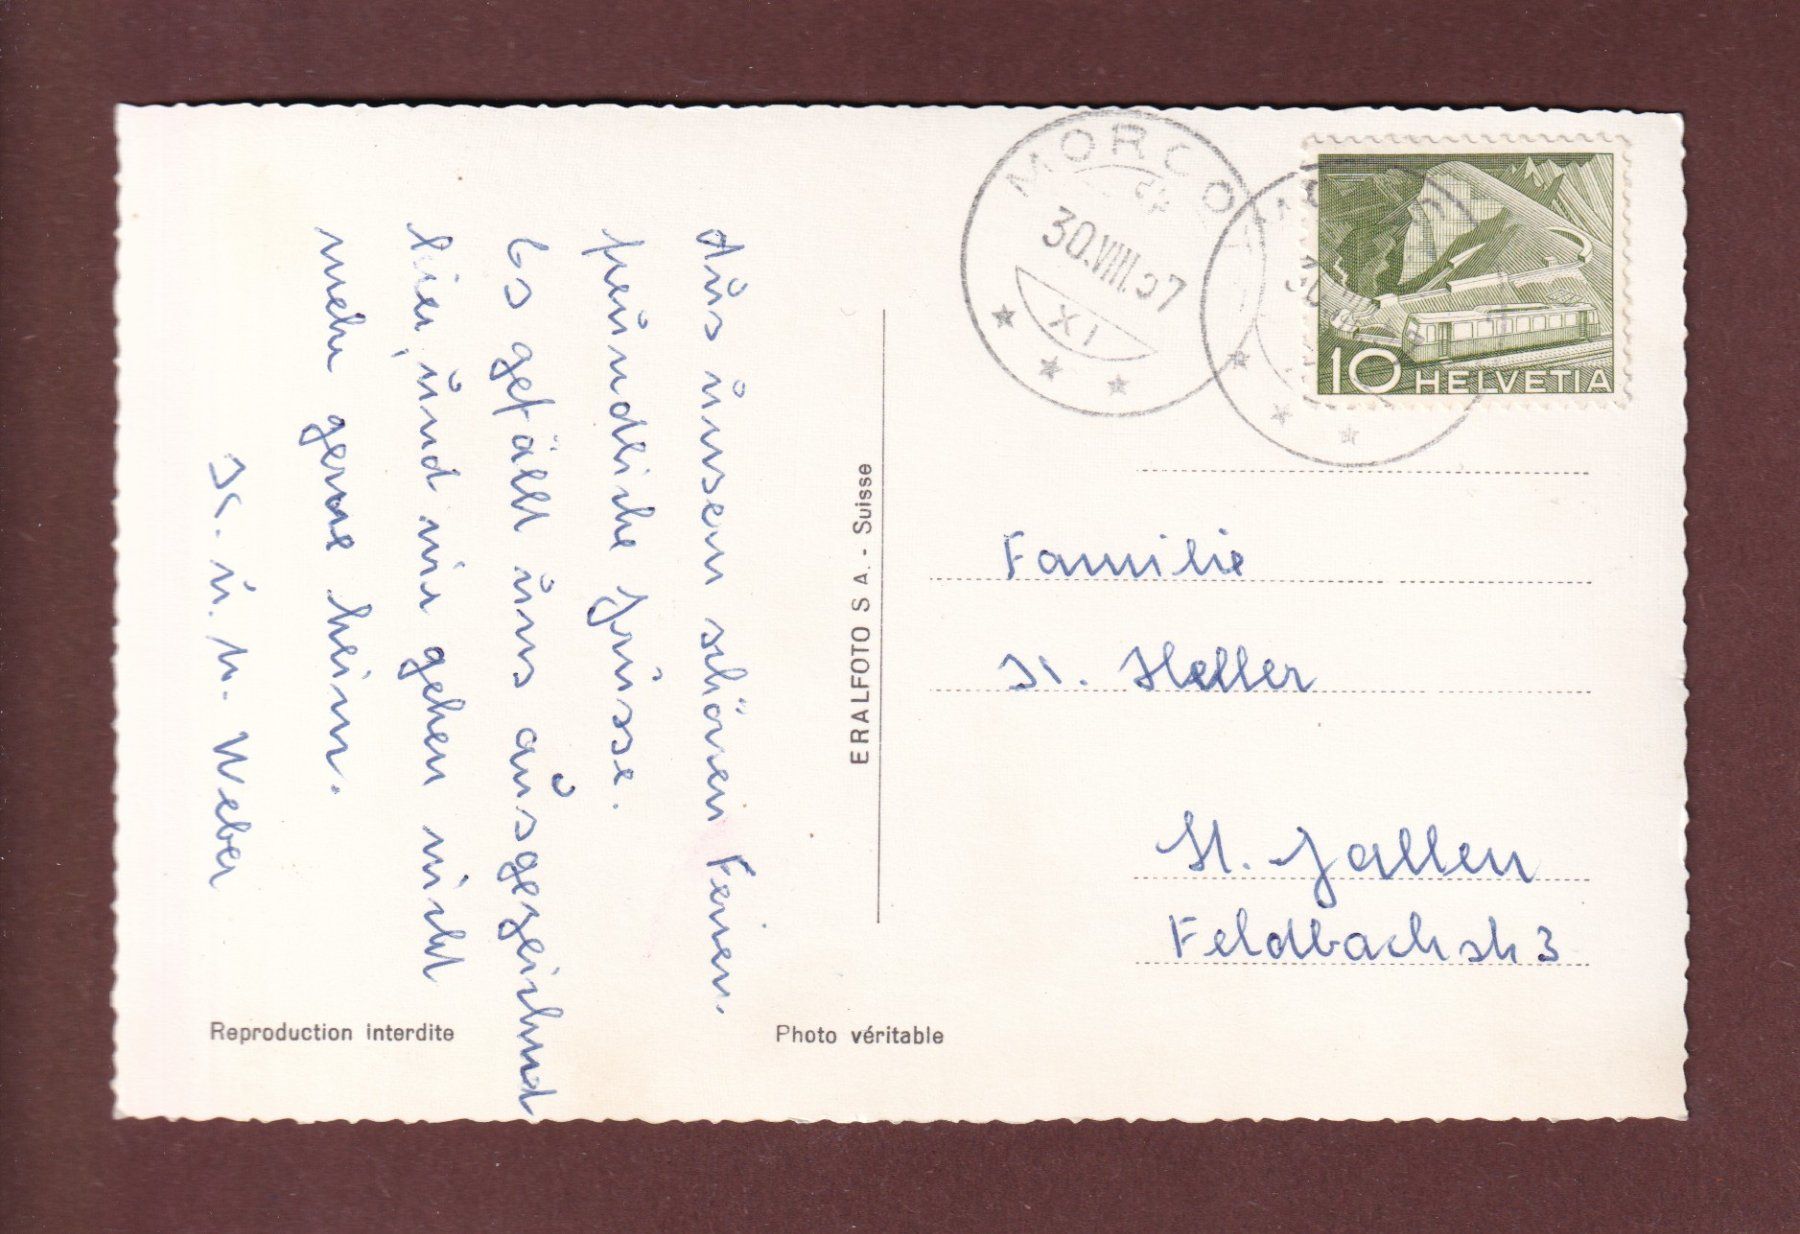 Aus unsern schönen Ferien,
freundliche Grüsse.
Es gefällt uns ausgezeichnet
hier, und wir gehen nicht
mehr gerne heim.
K. u. h. Weber
Reproduction interdite
Photo véritable
ERALFOTO S A. - Suisse
MORCO
30.VIII.57
XI
10 HELVETIA
Familie
K. Heller
St. Gallen
Feldbachstr 3